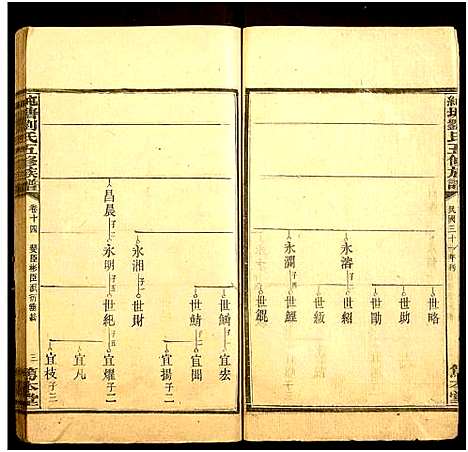 劉氏五修族譜
民國三十一年刊
篤本堂
世略
世助
世勛
永濬
世紹
世級
永澗
世經
世錕
劉氏五修族譜
卷十四
三
篤本堂
世鱅
宜宏
世鯖
宜聞
宜揚 子二
永湘
世財
昌晨
永明
世紀
宜耀 子二
宜凡
宜枝 子三